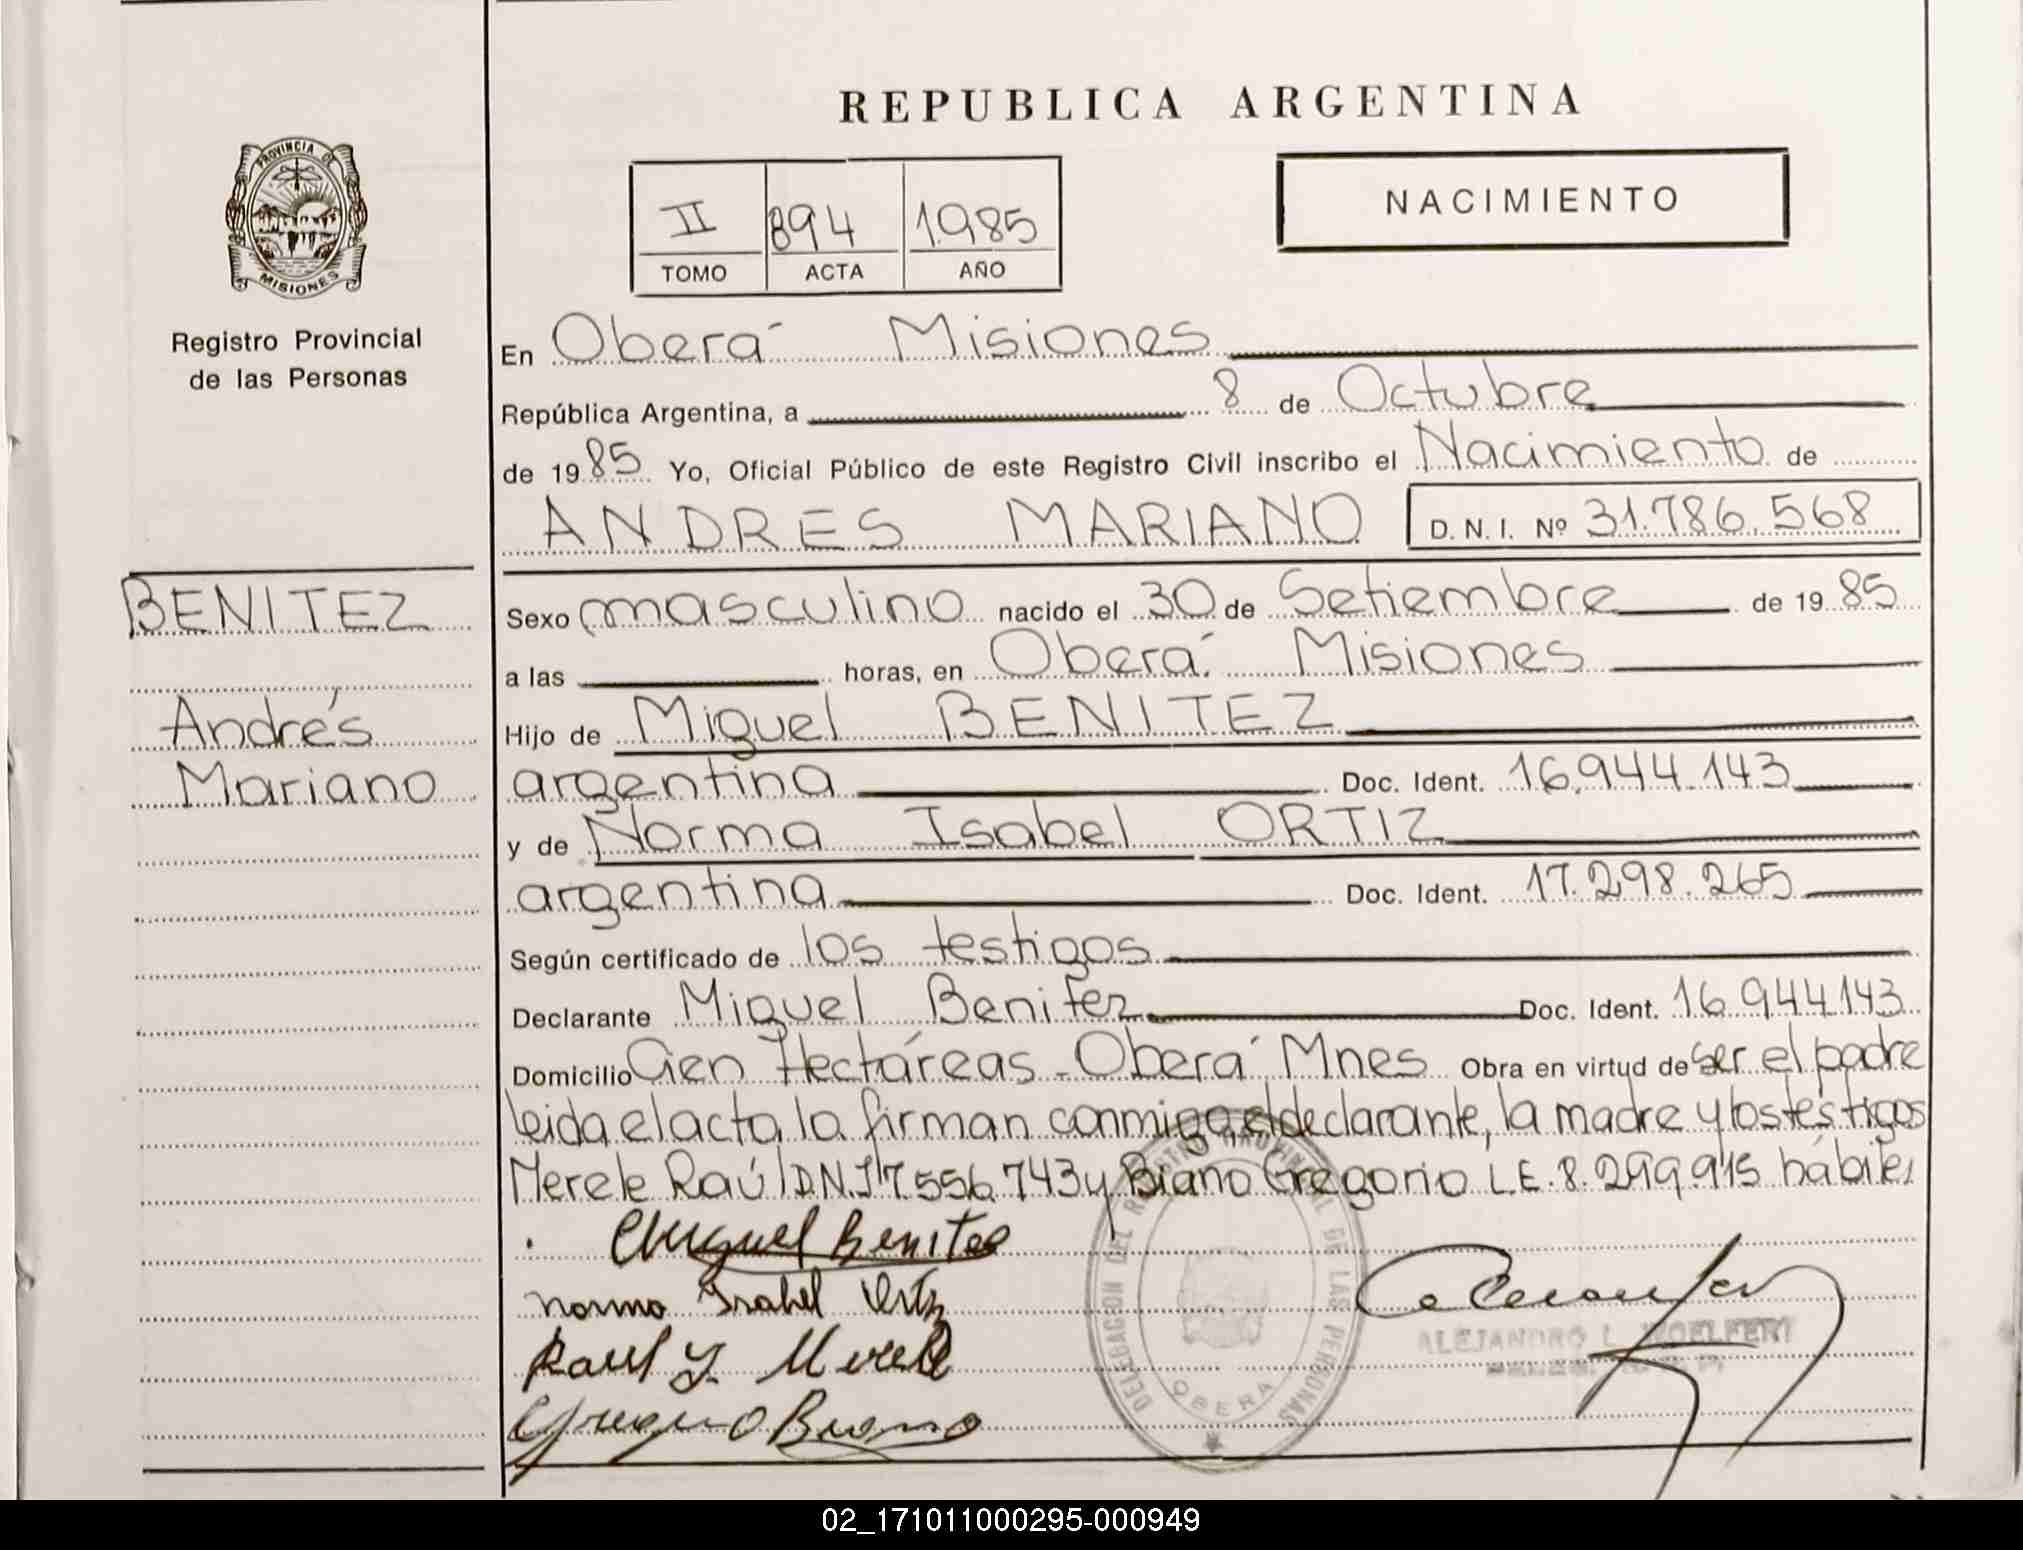 REPUBLICA ARGENTINA
PROVINCIA DE
MISIONES
II 894 1.985
TOMO ACTA AÑO
NACIMIENTO
Registro Provincial
de las Personas
BENITEZ
Andrés
Mariano
En Oberá Misiones
República Argentina, a 8 de Octubre
de 1985 Yo, Oficial Público de este Registro Civil inscribo el Nacimiento de
ANDRES MARIANO D. N. I. Nº 31.786.568
Sexo masculino nacido el 30 de Setiembre de 1985
a las horas, en Oberá Misiones
Hijo de Miguel BENITEZ
argentina Doc. Ident. 16.944.143
y de Norma Isabel ORTIZ
argentina Doc. Ident. 17.298.265
Según certificado de los testigos
Declarante Miguel Benitez Doc. Ident. 16.944.143
Domicilio Cien Hectáreas - Oberá Mnes Obra en virtud de ser el padre
leida el acta la firman conmigo, el declarante, la madre y los testigos
Merele Raúl D.N.I 17.556.743 y Biano Gregorio L.E. 8.299.915 hábiles
Miguel Benitez
Norma Isabel Ortiz
Raul Merele
Gregorio Biano
DELEGACION DEL REGISTRO PROVINCIAL DE LAS PERSONAS
OBERA
ALEJANDRO L. WOELFERT
02_171011000295-000949